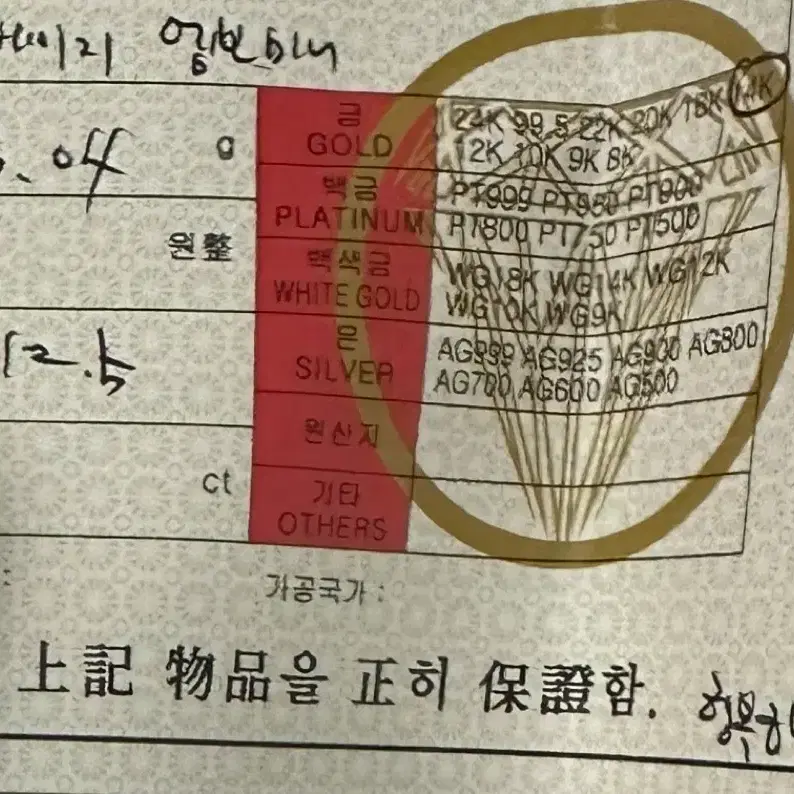 .04 g
원整
12.5
ct
금
GOLD
24K 99.5 22K 20K 18K 14K
12K 10K 9K 8K
백금
PLATINUM
PT999 PT950 PT900
PT800 PT750 PT500
백색금
WHITE GOLD
WG18K WG14K WG12K
WG10K WG9K
은
SILVER
AG999 AG925 AG900 AG800
AG700 AG600 AG500
원산지
기타
OTHERS
가공국가 :
上記 物品을 正히 保證함.